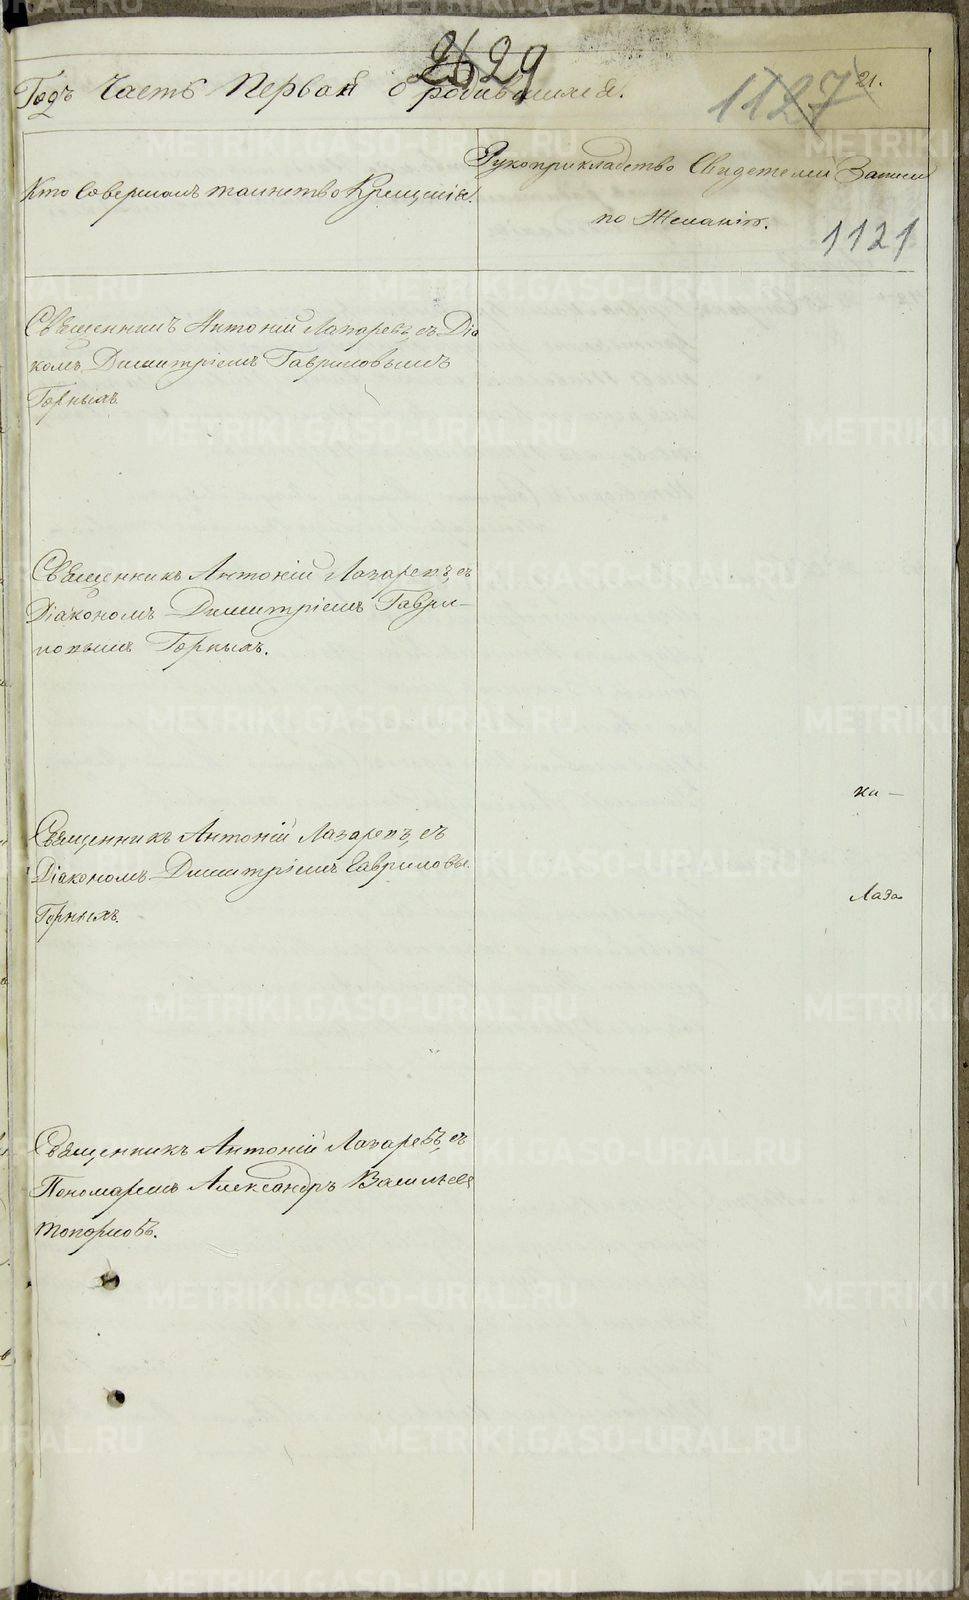 2629
Годъ Часть Первая о родившихся.
1127
21.
Кто Совершалъ таинство Крещенія.
Рукоприкладство Свидетелей Записи
по Желанію.
1121
Священникъ Антоній Лазаревъ, съ Діа
кономъ Димитріемъ Гавриловымъ
Горныхъ
Священникъ Антоній Лазаревъ, съ
Діакономъ Димитріемъ Гаври-
ловымъ Горныхъ.
Священникъ Антоній Лазаревъ, съ
Діакономъ Димитріемъ Гавриловы
Горныхъ.
ки —
Лаза
Священникъ Антоній Лазаревъ, съ
Пономаремъ Александръ Васильевъ
Топорковъ.
METRIKI.GASO-URAL.RU